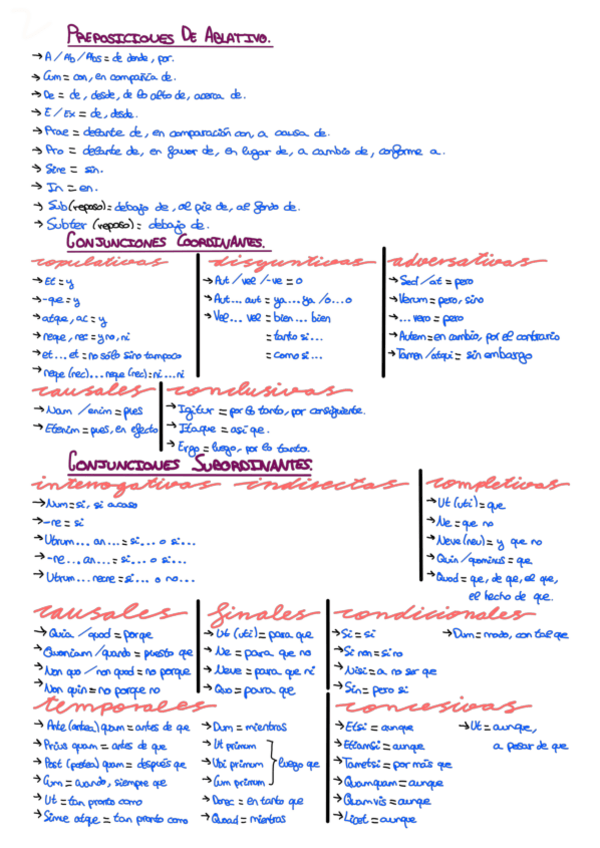 PREPOSICIONES DE ABLATIVO.
→ A / Ab / Abs = de donde, por.
→ Cum = con, en compañía de.
→ De = de, desde, de lo alto de, acerca de.
→ E / Ex = de, desde.
→ Prae = delante de, en comparación con, a causa de.
→ Pro = delante de, en favor de, en lugar de, a cambio de, conforme a.
→ Sine = sin.
→ In = en.
→ Sub (reposo) = debajo de, al pie de, al fondo de.
→ Subter (reposo) = debajo de.
CONJUNCIONES COORDINANTES.
copulativas
→ Et = y
→ -que = y
→ atque, ac = y
→ neque, nec = y no, ni
→ et... et = no sólo sino tampoco
→ neque (nec)... neque (nec) = ni... ni
disyuntivas
→ Aut / vel / -ve = o
→ Aut... aut = ya... ya / o... o
→ Vel... vel = bien... bien
= tanto si...
= como si...
adversativas
→ Sed / at = pero
→ Verum = pero, sino
→ ... vero = pero
→ Autem = en cambio, por el contrario
→ Tamen / atqui = sin embargo
causales
→ Nam / enim = pues
→ Etenim = pues, en efecto
conclusivas
→ Igitur = por lo tanto, por consiguiente.
→ Itaque = así que.
→ Ergo = luego, por lo tanto.
CONJUNCIONES SUBORDINANTES.
interrogativas indirectas
→ Num = si, si acaso
→ -ne = si
→ Utrum... an... = si... o si...
→ -ne... an... = si... o si...
→ Utrum... necne = si... o no...
completivas
→ Ut (uti) = que
→ Ne = que no
→ Neve (neu) = y que no
→ Quin / quominus = que
→ Quod = que, de que, el que,
el hecho de que.
causales
→ Quia / quod = porque
→ Quoniam / quando = puesto que
→ Non quo / non quod = no porque
→ Non quin = no porque no
finales
→ Ut (uti) = para que
→ Ne = para que no
→ Neve = para que ni
→ Quo = para que
condicionales
→ Si = si
→ Si non = si no
→ Nisi = a no ser que
→ Sin = pero si
→ Dum = modo, con tal que
temporales
→ Ante (antea) quam = antes de que
→ Prius quam = antes de que
→ Post (postea) quam = después que
→ Cum = cuando, siempre que
→ Ut = tan pronto como
→ Simul atque = tan pronto como
→ Dum = mientras
→ Ut primum
→ Ubi primum
→ Cum primum
luego que
→ Donec = en tanto que
→ Quoad = mientras
concesivas
→ Etsi = aunque
→ Etiamsi = aunque
→ Tametsi = por más que
→ Quamquam = aunque
→ Quamvis = aunque
→ Licet = aunque
→ Ut = aunque,
a pesar de que